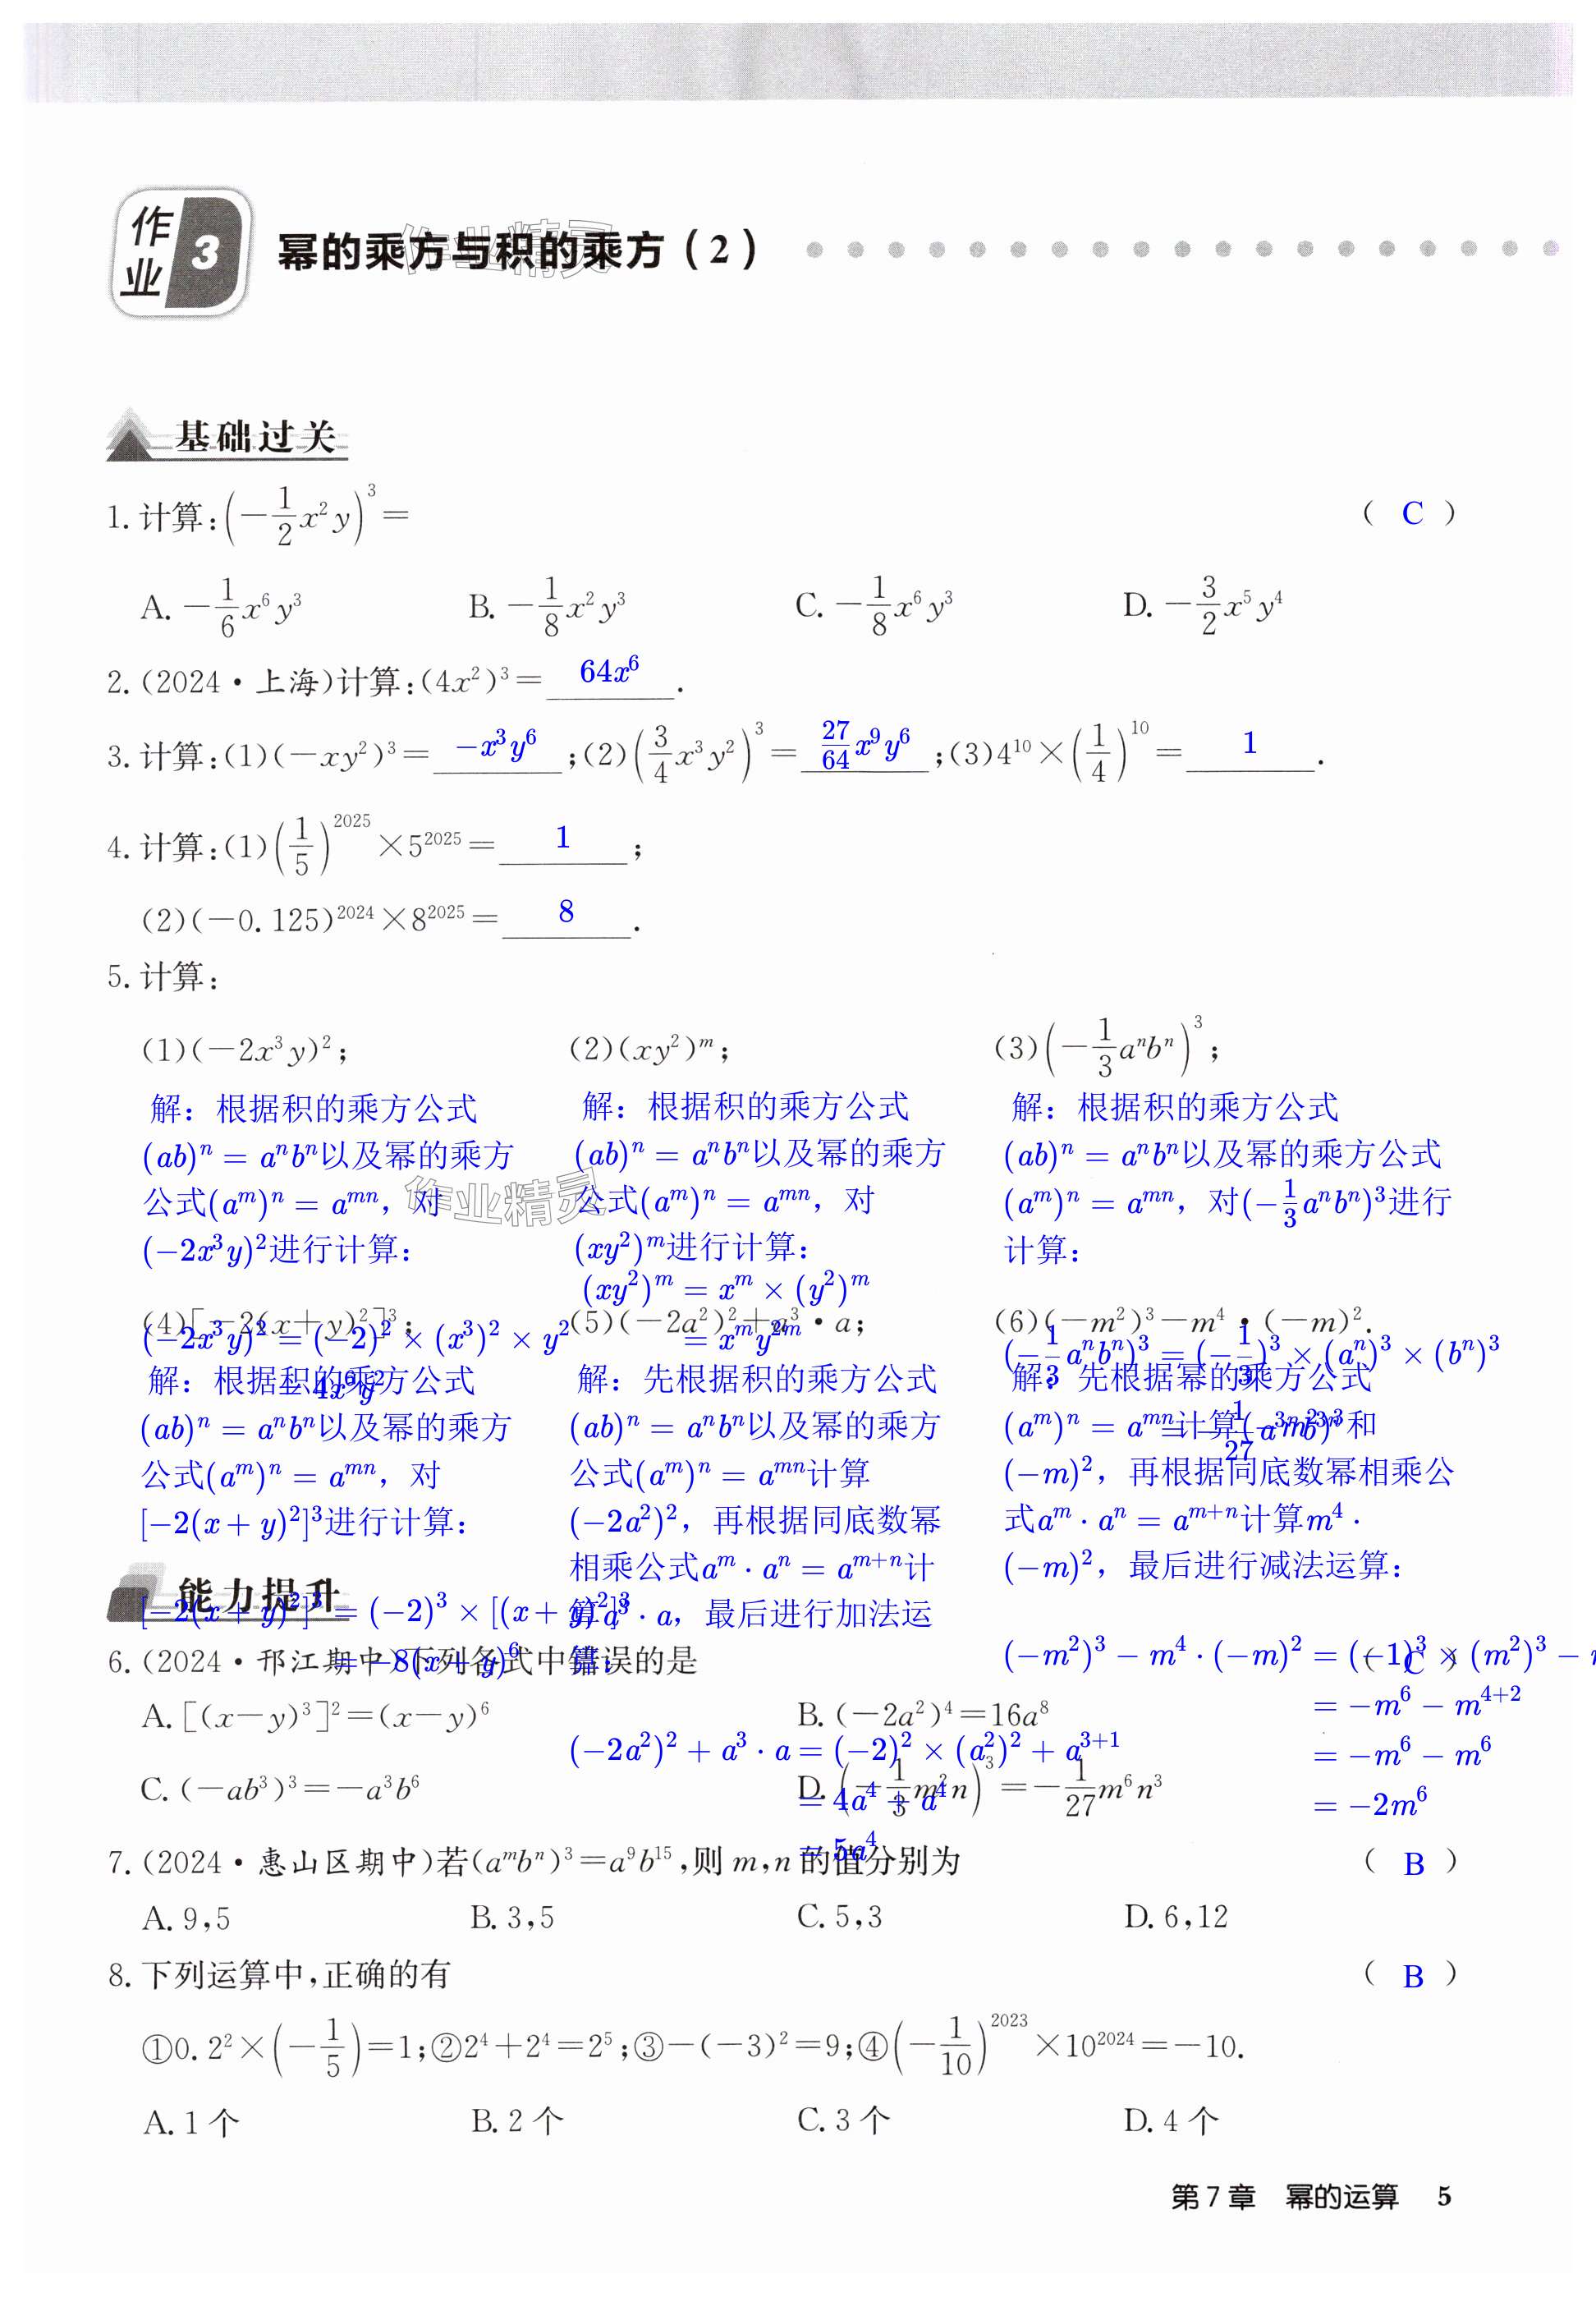 作业 3 幂的乘方与积的乘方(2)
作业精灵
基础过关
1. 计算:(-1/2 x²y)³= ( C )
A. -1/6 x⁶y³ B. -1/8 x²y³ C. -1/8 x⁶y³ D. -3/2 x⁵y⁴
2. (2024·上海)计算:(4x²)³= 64x⁶ .
3. 计算:(1)(-xy²)³= -x³y⁶ ;(2)(3/4 x³y²)³= 27/64 x⁹y⁶ ;(3)4¹⁰×(1/4)¹⁰= 1 .
4. 计算:(1)(1/5)²⁰²⁵×5²⁰²⁵= 1 ;
(2)(-0.125)²⁰²⁴×8²⁰²⁵= 8 .
5. 计算:
(1)(-2x³y)²; (2)(xy²)ᵐ; (3)(-1/3 aⁿbⁿ)³;
解:根据积的乘方公式
(ab)ⁿ = aⁿbⁿ以及幂的乘方
公式(aᵐ)ⁿ = aᵐⁿ,对
(-2x³y)²进行计算:
(-2x³y)² = (-2)² × (x³)² × y²
= 4x⁶y²
解:根据积的乘方公式
(ab)ⁿ = aⁿbⁿ以及幂的乘方
公式(aᵐ)ⁿ = aᵐⁿ,对
(xy²)ᵐ进行计算:
(xy²)ᵐ = xᵐ × (y²)ᵐ
= xᵐy²ᵐ
解:根据积的乘方公式
(ab)ⁿ = aⁿbⁿ以及幂的乘方公式
(aᵐ)ⁿ = aᵐⁿ,对(-1/3 aⁿbⁿ)³进行
计算:
(-1/3 aⁿbⁿ)³ = (-1/3)³ × (aⁿ)³ × (bⁿ)³
= -1/27 a³ⁿb³ⁿ
作业精灵
(4)[-2(x+y)²]³; (5)(-2a²)²+a³·a; (6)(-m²)³-m⁴·(-m)².
解:根据积的乘方公式
(ab)ⁿ = aⁿbⁿ以及幂的乘方
公式(aᵐ)ⁿ = aᵐⁿ,对
[-2(x + y)²]³进行计算:
[-2(x + y)²]³ = (-2)³ × [(x + y)²]³
= -8(x + y)⁶
解:先根据积的乘方公式
(ab)ⁿ = aⁿbⁿ以及幂的乘方
公式(aᵐ)ⁿ = aᵐⁿ计算
(-2a²)²,再根据同底数幂
相乘公式aᵐ · aⁿ = aᵐ⁺ⁿ计
算a³ · a,最后进行加法运
算:
(-2a²)² + a³ · a = (-2)² × (a²)² + a³⁺¹
= 4a⁴ + a⁴
= 5a⁴
解:先根据幂的乘方公式
(aᵐ)ⁿ = aᵐⁿ计算(-m²)³和
(-m)²,再根据同底数幂相乘公
式aᵐ · aⁿ = aᵐ⁺ⁿ计算m⁴ ·
(-m)²,最后进行减法运算:
(-m²)³ - m⁴ · (-m)² = (-1)³ × (m²)³ -
= -m⁶ - m⁴⁺²
= -m⁶ - m⁶
= -2m⁶
能力提升
6. (2024·邗江期中)下列各式中错误的是 ( C )
A. [(x-y)³]²=(x-y)⁶ B. (-2a²)⁴=16a⁸
C. (-ab³)³=-a³b⁶ D. (-1/3 m²n)³=-1/27 m⁶n³
7. (2024·惠山区期中)若(aᵐbⁿ)³=a⁹b¹⁵,则 m,n 的值分别为 ( B )
A. 9,5 B. 3,5 C. 5,3 D. 6,12
8. 下列运算中,正确的有 ( B )
①0.2²×(-1/5)=1;②2⁴+2⁴=2⁵;③-(-3)²=9;④(-1/10)²⁰²³×10²⁰²⁴=-10.
A. 1 个 B. 2 个 C. 3 个 D. 4 个
第 7 章 幂的运算 5